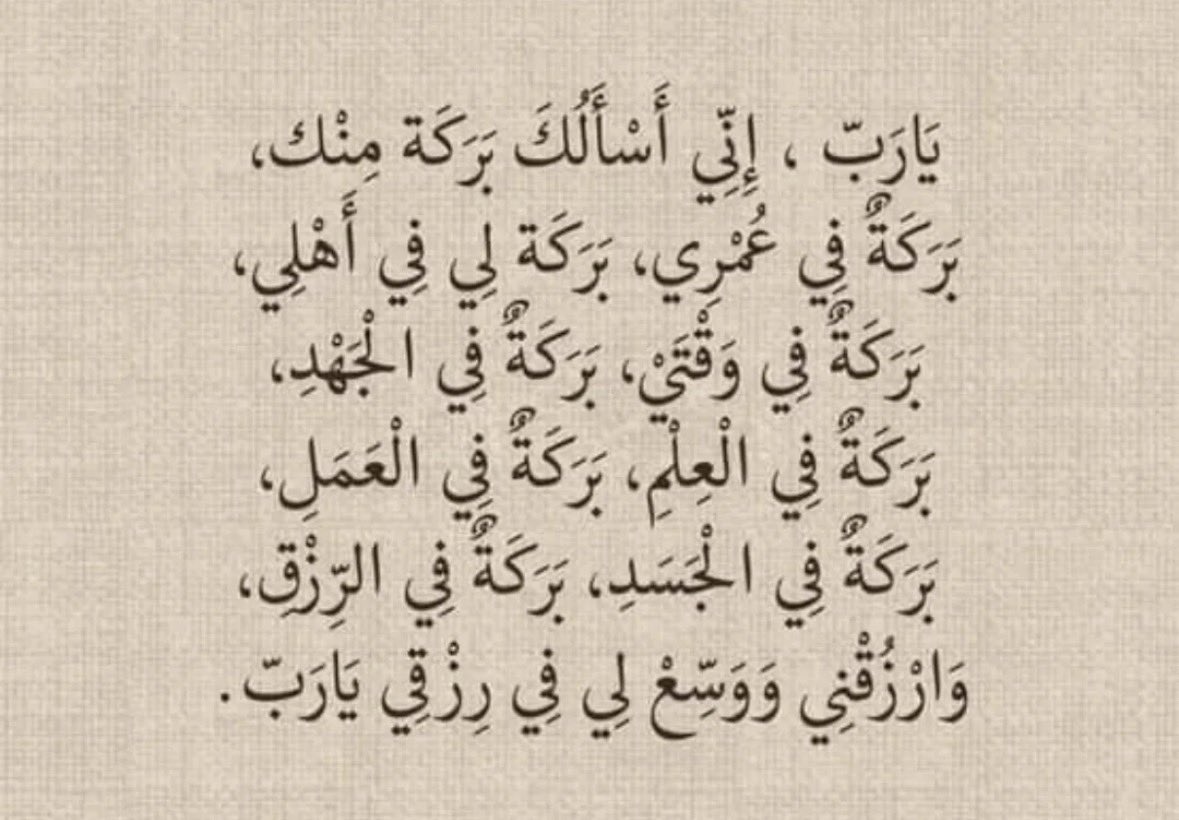 يَارَبّ ، إِنِّي أَسْأَلُكَ بَرَكَة مِنْك،
بَرَكَةٌ فِي عُمْرِي، بَرَكَة لِي فِي أَهْلِي،
بَرَكَةٌ فِي وَقْتَيْ، بَرَكَةٌ فِي الْجَهْدِ،
بَرَكَةٌ فِي الْعِلْمِ، بَرَكَةٌ فِي الْعَمَلِ،
بَرَكَةٌ فِي الْجَسَدِ، بَرَكَةٌ فِي الرِّزْقِ،
وَارْزُقْنِي وَوَسِّعْ لِي فِي رِزْقِي يَارَبّ.